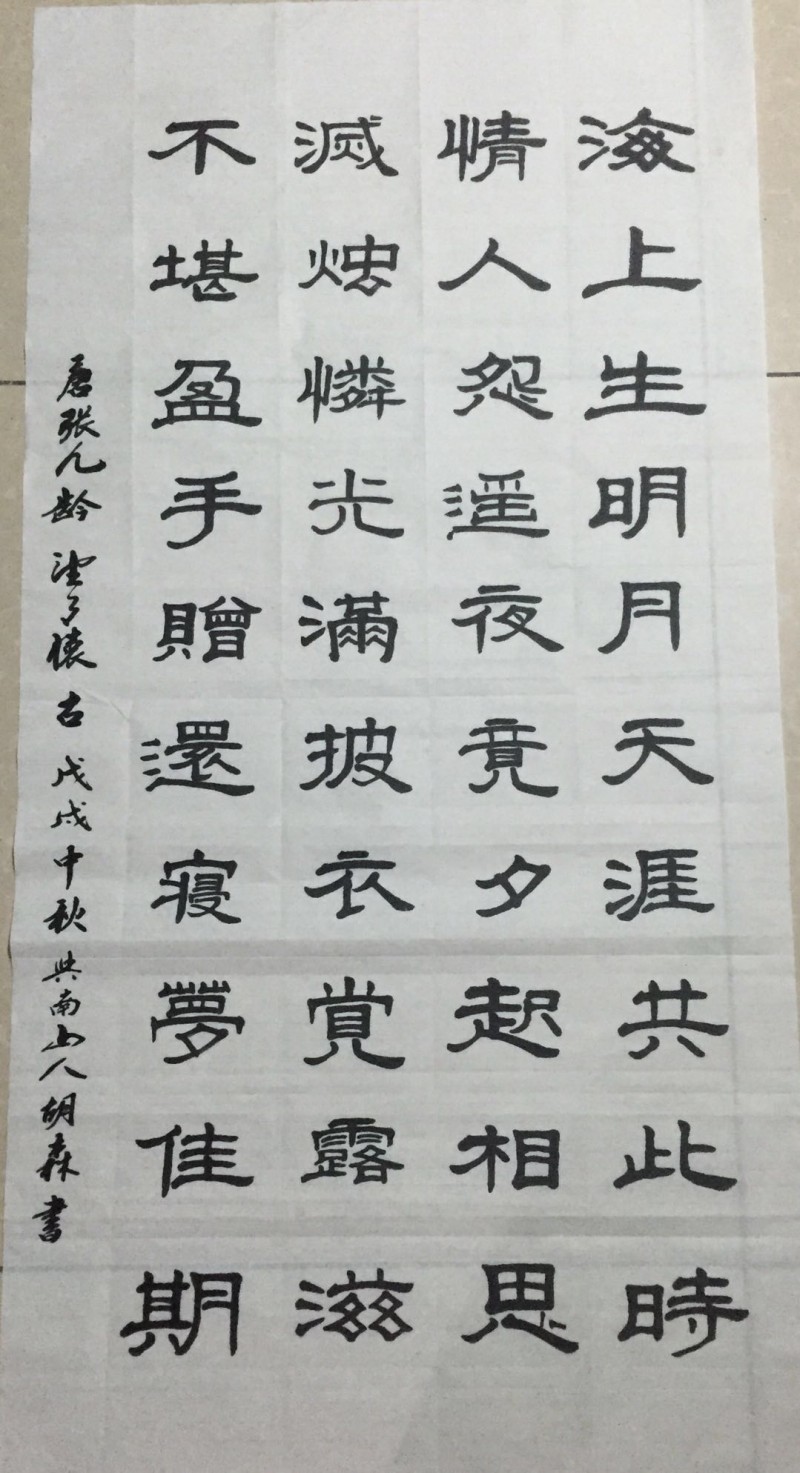 海上生明月天涯共此時
情人怨遥夜竟夕起相思
滅燭憐光滿披衣覺露滋
不堪盈手贈還寢夢佳期
唐張九齡望月懷古戊戌中秋典南山人胡森書